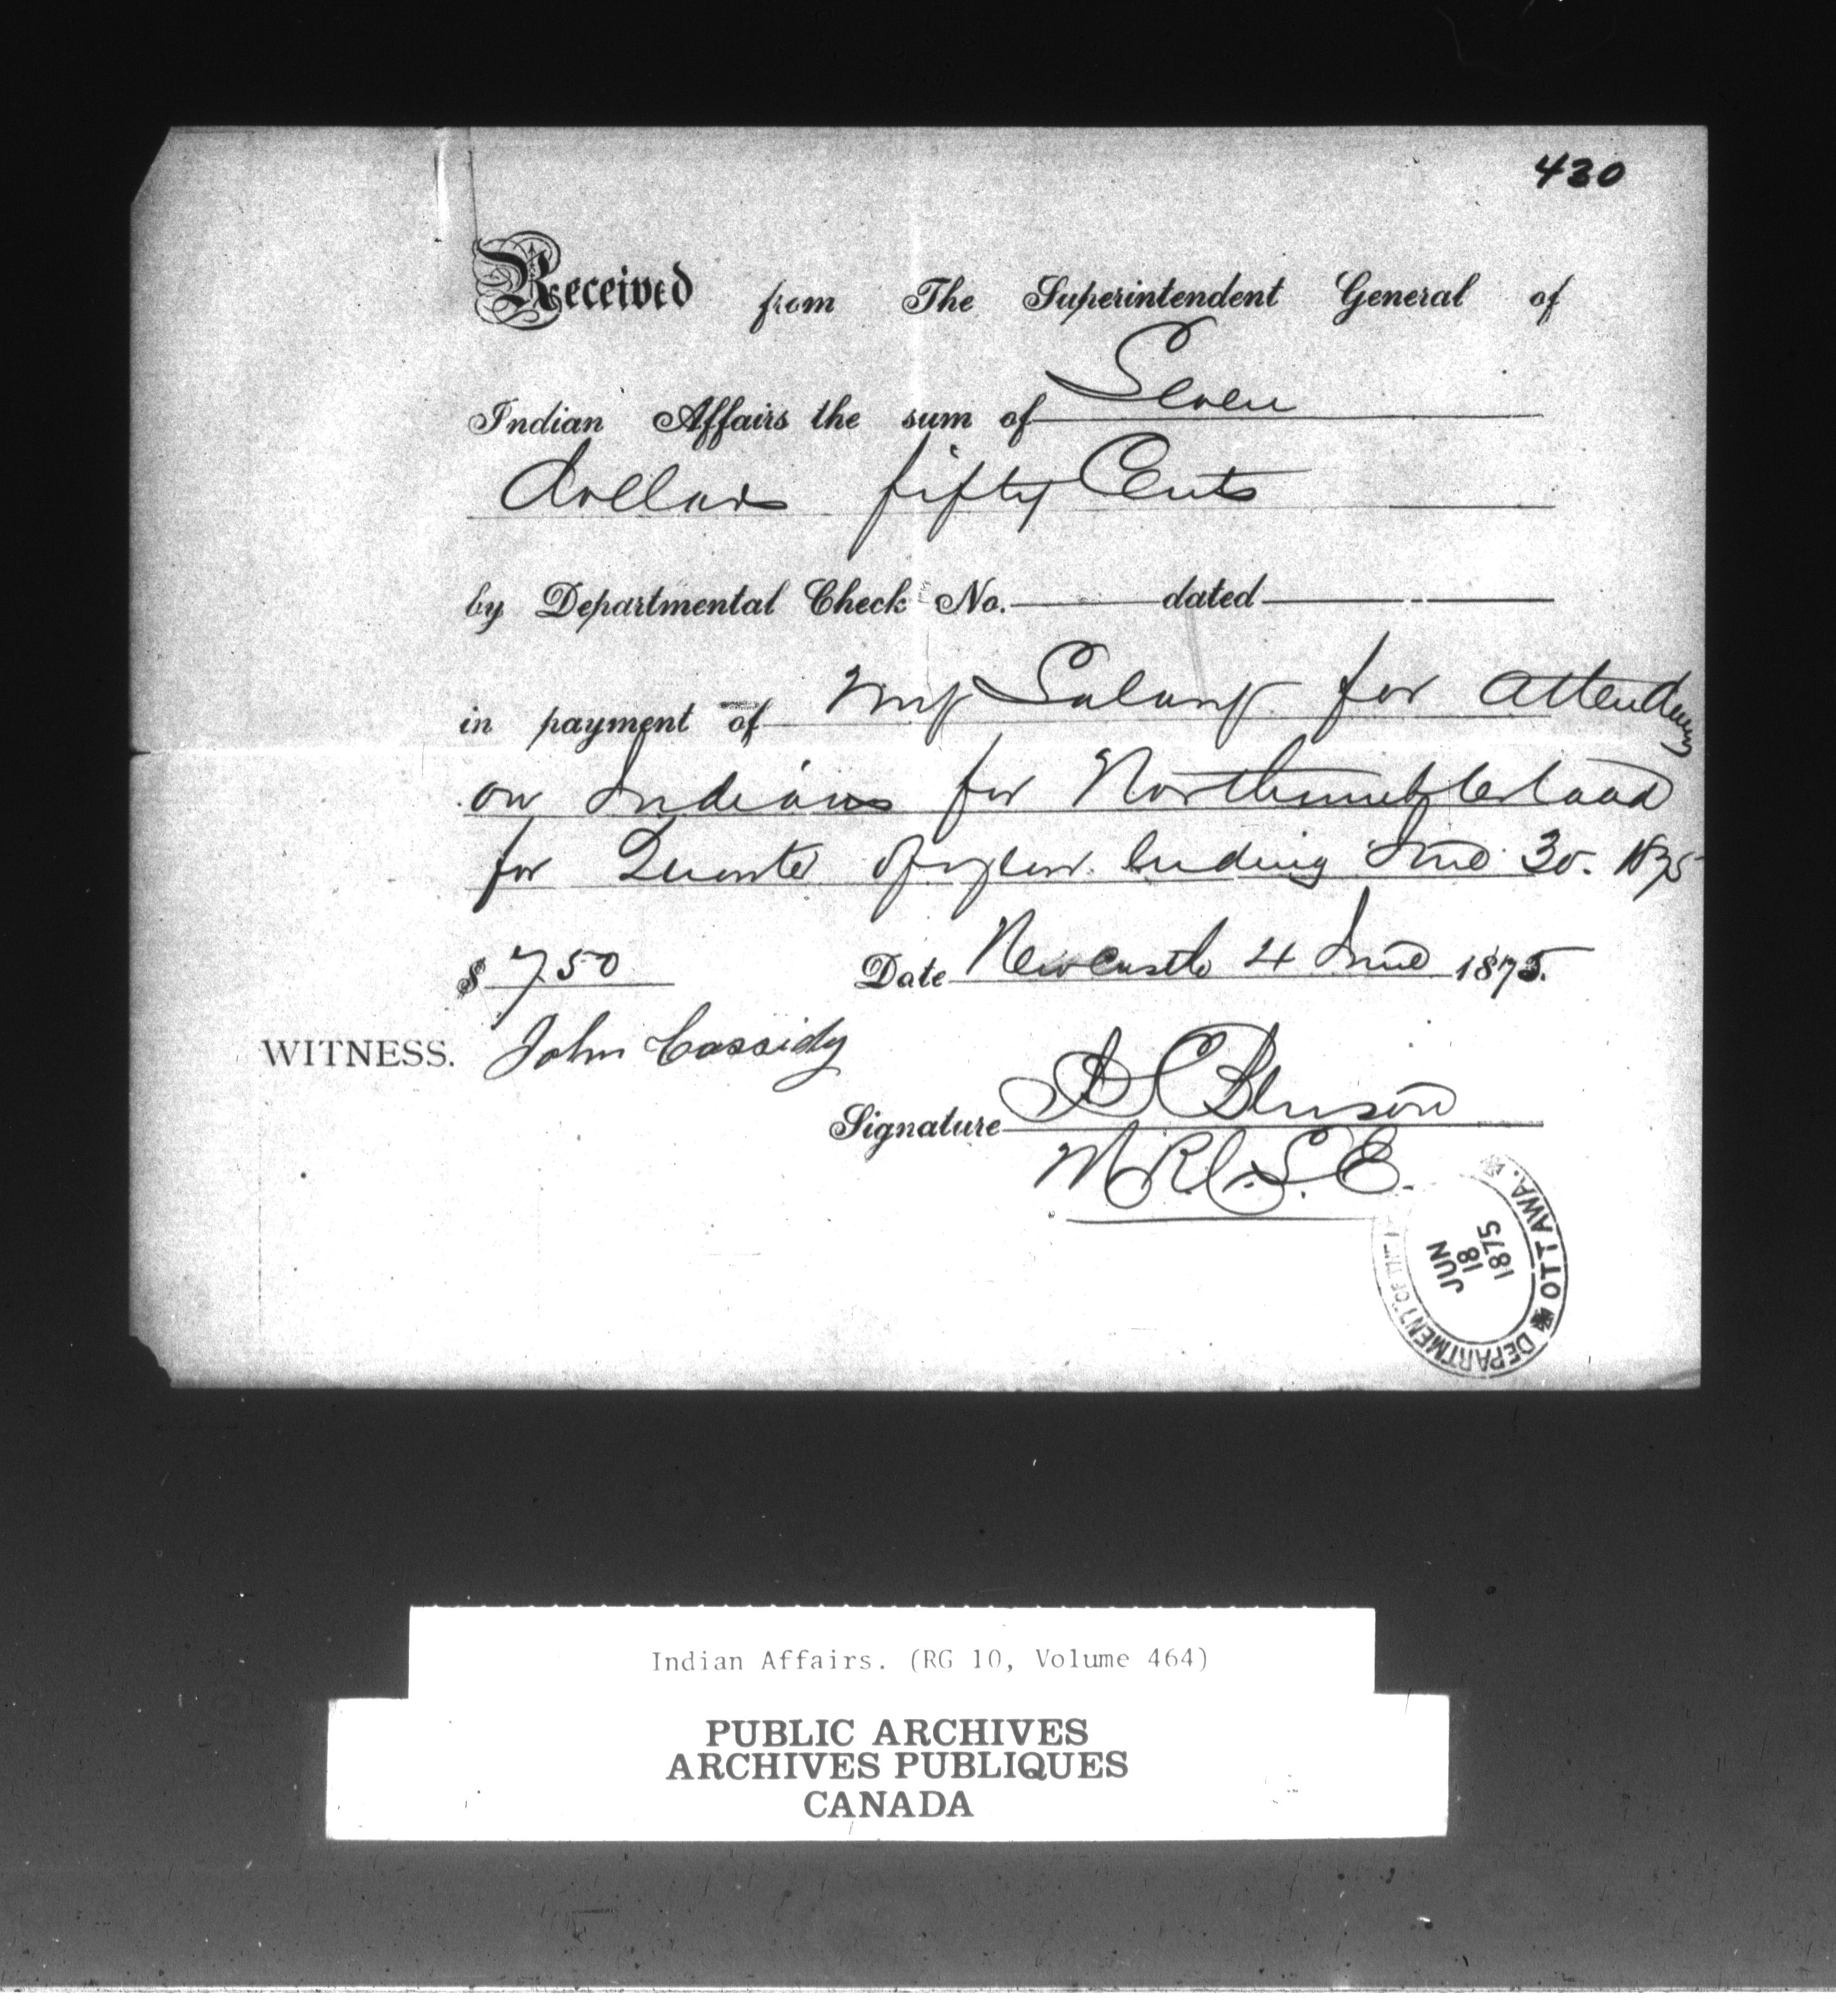 430
Received from The Superintendent General of
Indian Affairs the sum of Seven
dollars fifty Cents
by Departmental Check No. dated
in payment of my Salary for attendance
on Indians for Northumberland
for Quarter of year ending June 30. 1875
$ 7.50 Date Newcastle 4 June 1875.
WITNESS. John Cassidy
Signature Benson
M.R.C.S.E.
DEPARTMENT OF THE
OTTAWA.
JUN
18
1875
Indian Affairs. (RG 10, Volume 464)
PUBLIC ARCHIVES
ARCHIVES PUBLIQUES
CANADA